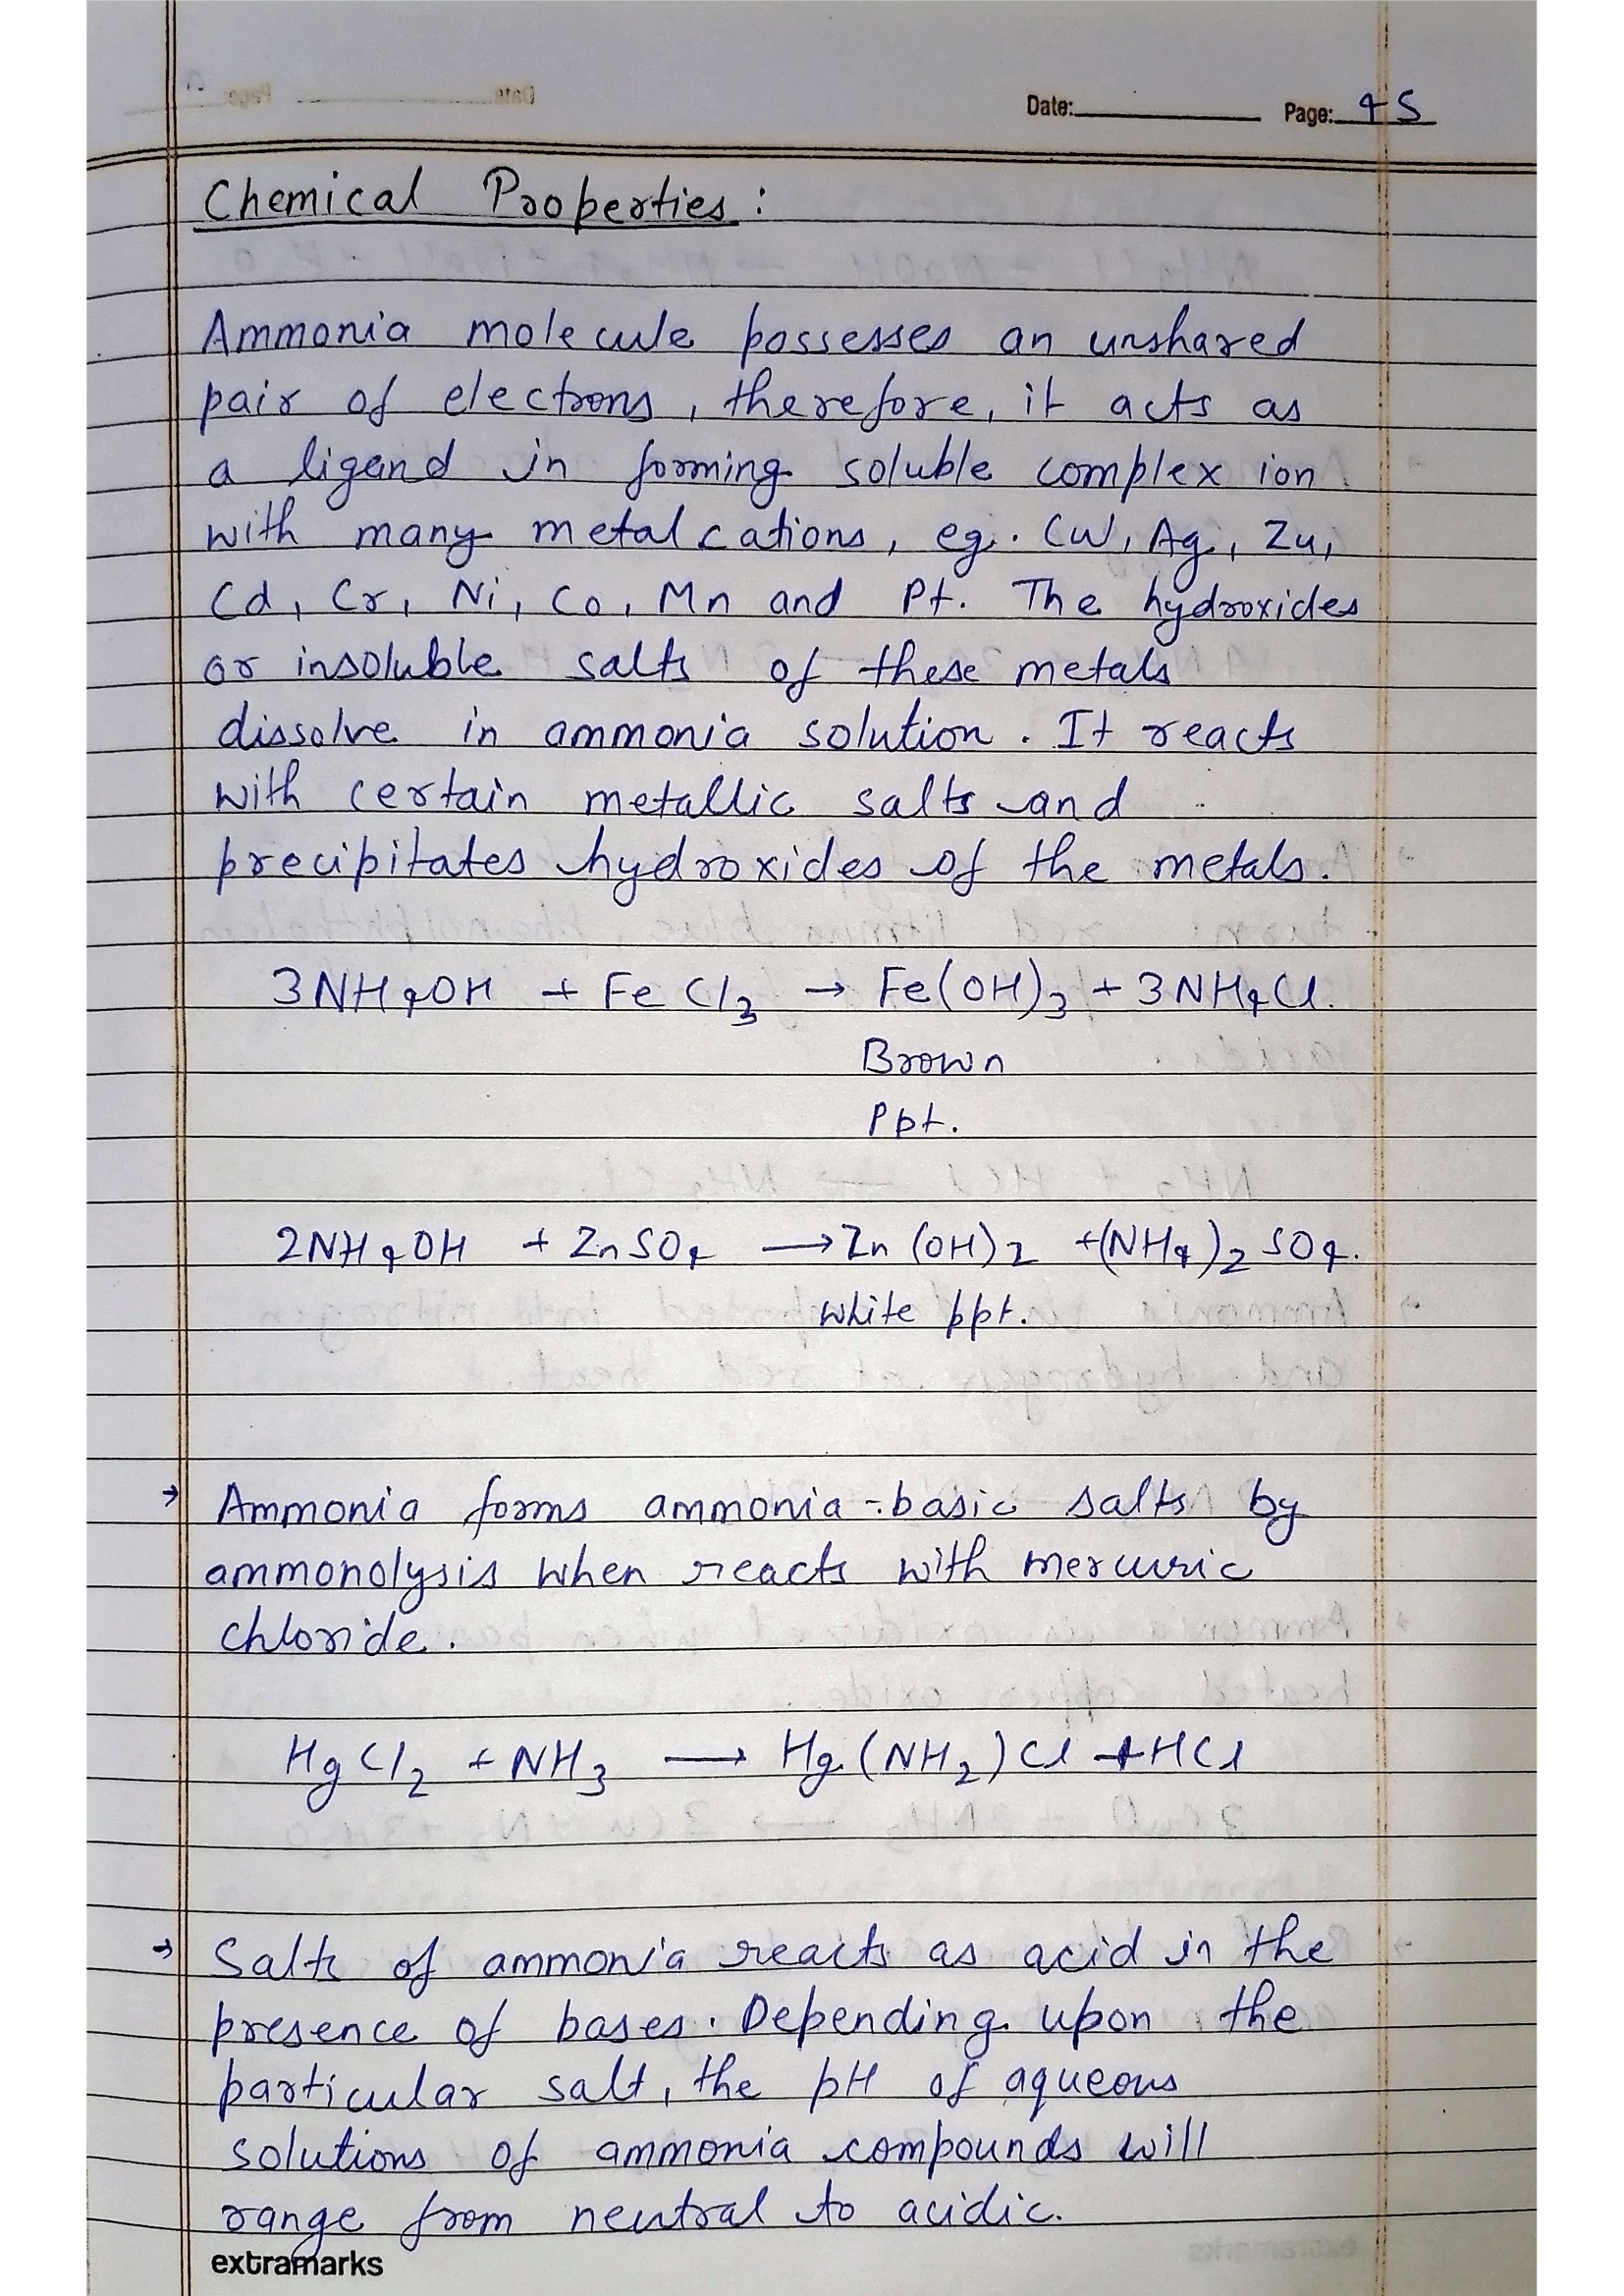 Date: Page: 45
Chemical Properties :
Ammonia molecule possesses an unshared
pair of electrons, therefore, it acts as
a ligand in forming soluble complex ion
with many metal cations, eg. Cu, Ag, Zu,
Cd, Cr, Ni, Co, Mn and Pt. The hydroxides
or insoluble salts of these metals
dissolve in ammonia solution. It reacts
with certain metallic salts and
precipitates hydroxides of the metals.
3NH4OH + FeCl3 → Fe(OH)3 + 3NH4Cl.
Brown
Ppt.
2NH4OH + ZnSO4 → Zn(OH)2 + (NH4)2SO4.
White ppt.
→ Ammonia forms ammonia-basic salts by
ammonolysis when reacts with mercuric
chloride.
HgCl2 + NH3 → Hg(NH2)Cl + HCl
→ Salts of ammonia reacts as acid in the
presence of bases. Depending upon the
particular salt, the pH of aqueous
solutions of ammonia compounds will
range from neutral to acidic.
extramarks